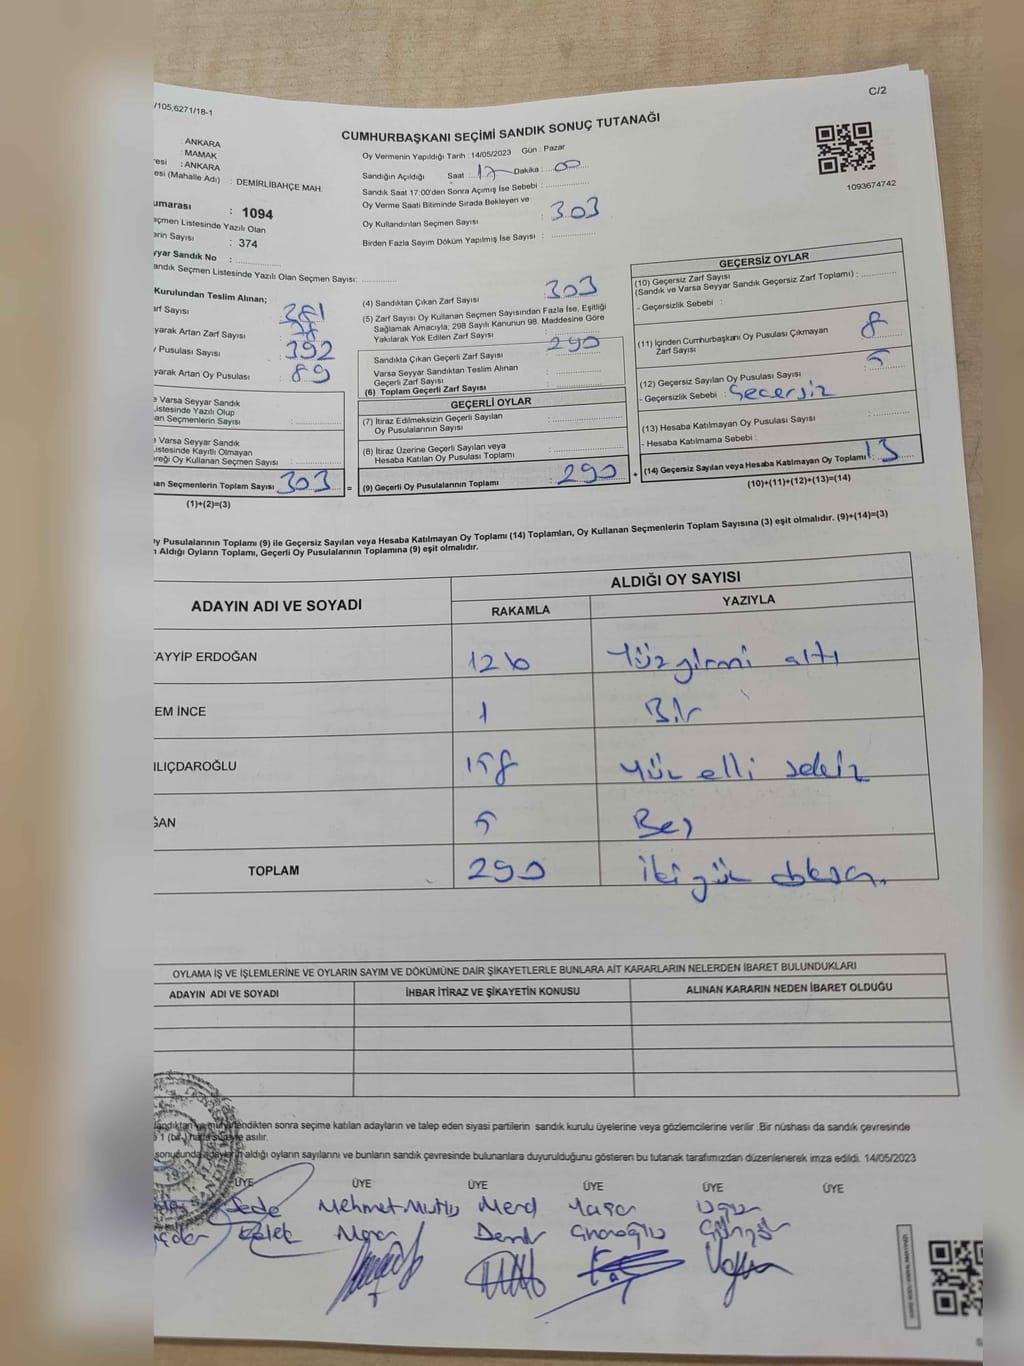 /105,6271/18-1
C/2
CUMHURBAŞKANI SEÇİMİ SANDIK SONUÇ TUTANAĞI
: ANKARA
: MAMAK
resi : ANKARA
esi (Mahalle Adı) : DEMİRLİBAHÇE MAH.
Oy Vermenin Yapıldığı Tarih : 14/05/2023 Gün : Pazar
Sandığın Açıldığı Saat : 17 Dakika : 00
Sandık Saat 17:00'den Sonra Açılmış İse Sebebi :
Oy Verme Saati Bitiminde Sırada Bekleyen ve
Oy Kullandırılan Seçmen Sayısı : 303
Birden Fazla Sayım Döküm Yapılmış İse Sayısı :
1093674742
umarası : 1094
eçmen Listesinde Yazılı Olan
erin Sayısı : 374
yyar Sandık No :
andık Seçmen Listesinde Yazılı Olan Seçmen Sayısı:
Kurulundan Teslim Alınan;
arf Sayısı 381
yarak Artan Zarf Sayısı 78
y Pusulası Sayısı 392
yarak Artan Oy Pusulası 89
e Varsa Seyyar Sandık
Listesinde Yazılı Olup
an Seçmenlerin Sayısı :
e Varsa Seyyar Sandık
Listesinde Kayıtlı Olmayan
ereği Oy Kullanan Seçmen Sayısı :
an Seçmenlerin Toplam Sayısı 303 =
(1)+(2)=(3)
(4) Sandıktan Çıkan Zarf Sayısı 303
(5) Zarf Sayısı Oy Kullanan Seçmen Sayısından Fazla İse, Eşitliği
Sağlamak Amacıyla, 298 Sayılı Kanunun 98. Maddesine Göre
Yakılarak Yok Edilen Zarf Sayısı
Sandıkta Çıkan Geçerli Zarf Sayısı 290
Varsa Seyyar Sandıktan Teslim Alınan
Geçerli Zarf Sayısı :
(6) Toplam Geçerli Zarf Sayısı :
GEÇERLİ OYLAR
(7) İtiraz Edilmeksizin Geçerli Sayılan
Oy Pusulalarının Sayısı :
(8) İtiraz Üzerine Geçerli Sayılan veya
Hesaba Katılan Oy Pusulası Toplamı :
(9) Geçerli Oy Pusulalarının Toplamı : 290 +
GEÇERSİZ OYLAR
(10) Geçersiz Zarf Sayısı
(Sandık ve Varsa Seyyar Sandık Geçersiz Zarf Toplamı) :
- Geçersizlik Sebebi :
(11) İçinden Cumhurbaşkanı Oy Pusulası Çıkmayan
Zarf Sayısı : 8
(12) Geçersiz Sayılan Oy Pusulası Sayısı : 5
- Geçersizlik Sebebi : Gecersiz
(13) Hesaba Katılmayan Oy Pusulası Sayısı :
- Hesaba Katılmama Sebebi :
(14) Geçersiz Sayılan veya Hesaba Katılmayan Oy Toplamı : 13
(10)+(11)+(12)+(13)=(14)
y Pusulalarının Toplamı (9) ile Geçersiz Sayılan veya Hesaba Katılmayan Oy Toplamı (14) Toplamları, Oy Kullanan Seçmenlerin Toplam Sayısına (3) eşit olmalıdır. (9)+(14)=(3)
n Aldığı Oyların Toplamı, Geçerli Oy Pusulalarının Toplamına (9) eşit olmalıdır.
ADAYIN ADI VE SOYADI ALDIĞI OY SAYISI
RAKAMLA YAZIYLA
TAYYİP ERDOĞAN 126 Yüzyirmi altı
EM İNCE 1 Bir
ILIÇDAROĞLU 158 Yüz elli sekiz
ĞAN 5 Beş
TOPLAM 290 iki yüz doksan.
OYLAMA İŞ VE İŞLEMLERİNE VE OYLARIN SAYIM VE DÖKÜMÜNE DAİR ŞİKAYETLERLE BUNLARA AİT KARARLARIN NELERDEN İBARET BULUNDUKLARI
ADAYIN ADI VE SOYADI İHBAR İTİRAZ VE ŞİKAYETİN KONUSU ALINAN KARARIN NEDEN İBARET OLDUĞU
andıktan ve mühürlendikten sonra seçime katılan adayların ve talep eden siyasi partilerin sandık kurulu üyelerine veya gözlemcilerine verilir .Bir nüshası da sandık çevresinde
e 1 (bir) hafta süreyle asılır.
sonucunda adayların aldığı oyların sayılarını ve bunların sandık çevresinde bulunanlara duyurulduğunu gösteren bu tutanak tarafımızdan düzenlenerek imza edildi. 14/05/2023
ÜYE ÜYE ÜYE ÜYE ÜYE ÜYE
Sede Mehmet Mutlu Merd Yaşar Uğur
Demir